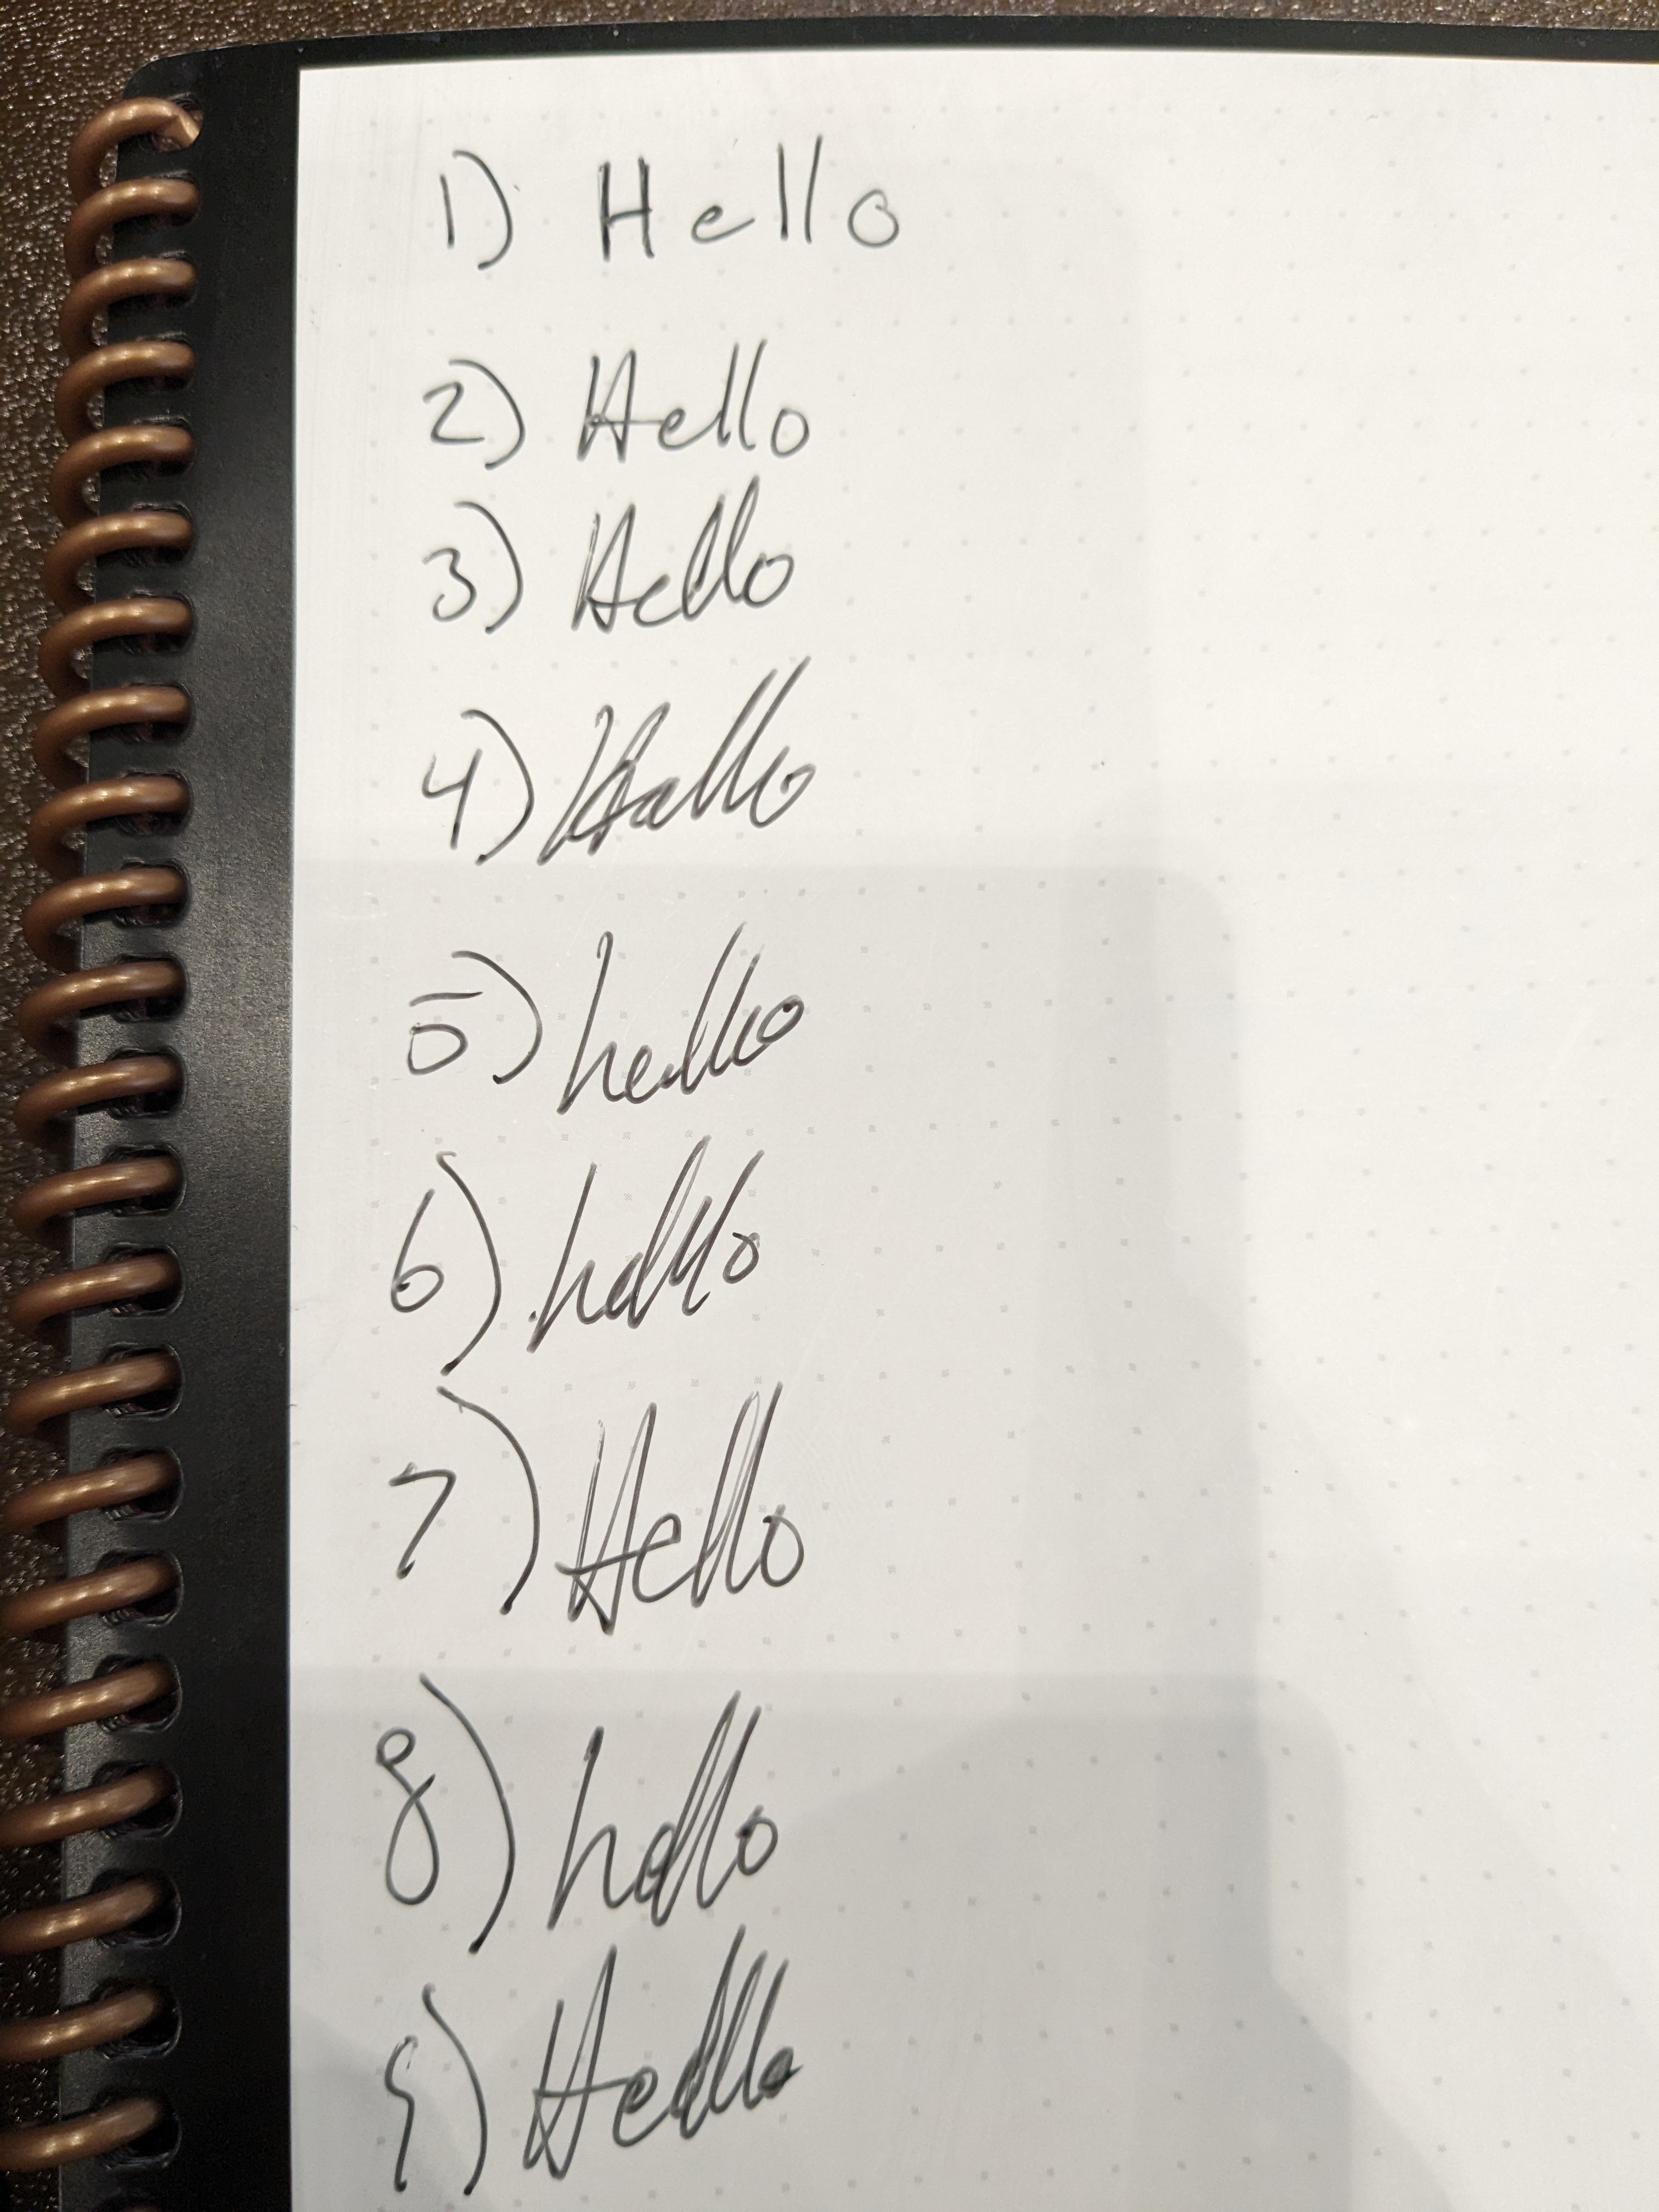 1) Hello
2) Hello
3) Hello
4) Hello
5) hello
6) hello
7) Hello
8) hello
9) Hello